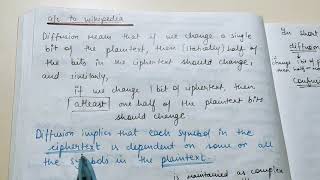 a/c to wikipedia
Diffusion means that if we change a single
bit of the plaintext, then (statically) half of
the bits in the ciphertext should change,
and similarly,
if we change 1 bit of ciphertext, then
atleast one half of the plaintext bits
should change
Diffusion implies that each symbol in the
ciphertext is dependent on some or all
the symbols in the plaintext
In short
diffusion
is maintained as complex